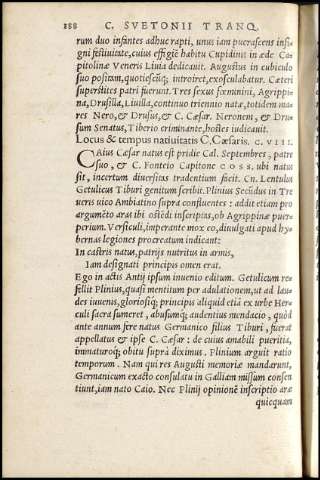 188 C. SVETONII TRANQ.
rum duo infantes adhuc rapti, unus iam puerascens insi-
gni festiuitate, cuius effigiē habitu Cupidinis in æde Ca-
pitolinæ Veneris Liuia dedicauit. Augustus in cubiculo
suo positam, quotiescūq; introiret, exosculabatur. Cæteri
superstites patri fuerunt. Tres sexus fœminini, Agrippi-
na, Drusilla, Liuilla, continuo triennio natæ, totidem ma-
res Nero, & Drusus, & C. Cæsar. Neronem, & Dru-
sum Senatus, Tiberio criminante, hostes iudicauit.
Locus & tempus natiuitatis C. Cæsaris. C. VIII.
CAius Cæsar natus est pridie Cal. Septembres, patre
suo, & C. Fonteio Capitone COSS. ubi natus
sit, incertum diuersitas tradentium facit. Cn. Lentulus
Getulicus Tiburi genitum scribit. Plinius Secūdus in Tre
ueris uico Ambiatino supra confluentes: addit etiam pro
argumēto aras ibi ostēdi inscriptas, ob Agrippinæ puer-
perium. Versiculi, imperante mox eo, diuulgati apud hy-
bernas legiones procreatum indicant:
In castris natus, patrijs nutritus in armis,
Iam designati principis omen erat.
Ego in actis Antij ipsum inuenio editum. Getulicum re-
fellit Plinius, quasi mentitum per adulationem, ut ad lau-
des iuuenis, gloriosiq; principis aliquid etiā ex urbe Her-
culi sacra sumeret, abusumq; audentius mendacio, quòd
ante annum ferè natus Germanico filius Tiburi, fuerat
appellatus & ipse C. Cæsar: de cuius amabili pueritia,
immaturoq; obitu suprà diximus. Plinium arguit ratio
temporum. Nam qui res Augusti memoriæ mandarunt,
Germanicum exacto consulatu in Galliam missum consen
tiunt, iam nato Caio. Nec Plinij opinionē inscriptio aræ
quicquam